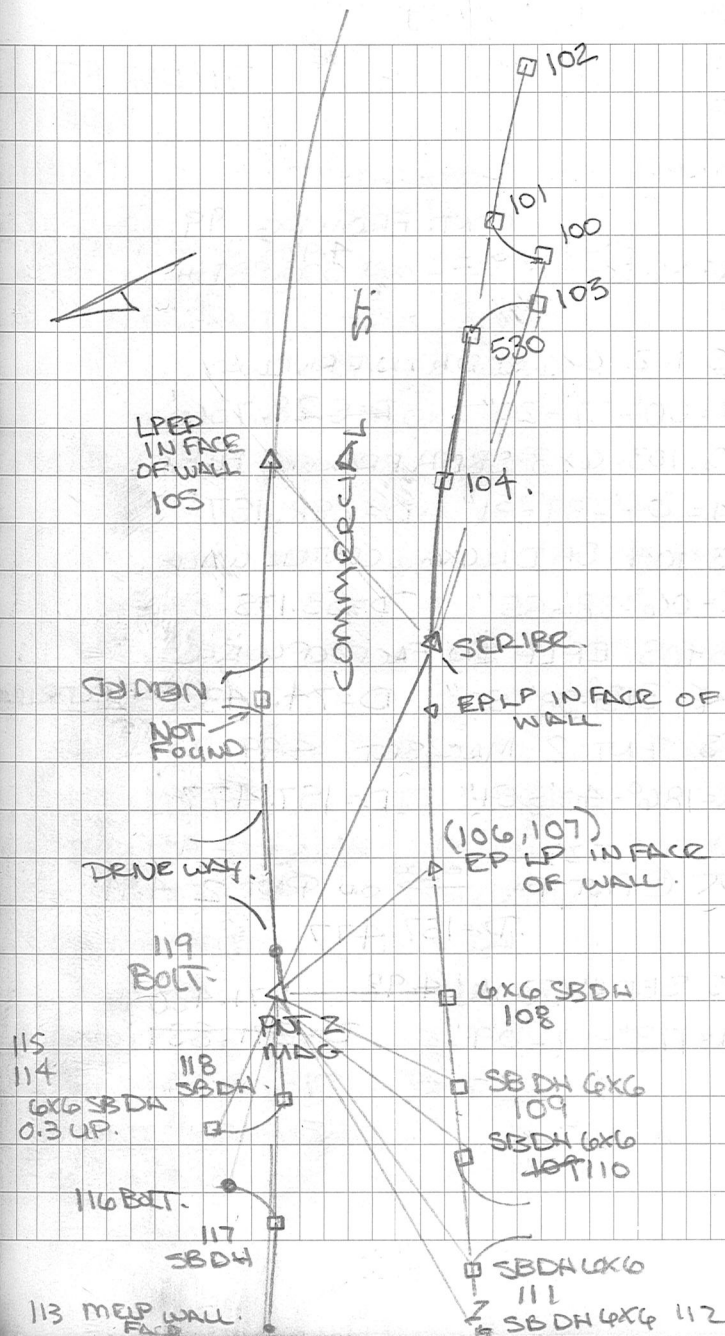 102
101
100
103
530
COMMERCIAL ST.
LPEP
IN FACE
OF WALL
105
104.
SCRIBE.
EPLP IN FACE OF
WALL
NOT
FOUND
(106,107)
EP LP IN FACE
OF WALL.
DRIVEWAY.
119
BOLT.
PNT 2
MAG
6X6 SBDH
108
115
114
6X6 SBDH
0.3 UP.
118
SBDH.
SBDH 6X6
109
SBDH 6X6
109 110
116 BOLT.
117
SBDH
SBDH 6X6
111
SBDH 6X6 112
113 MELP WALL.
FACE